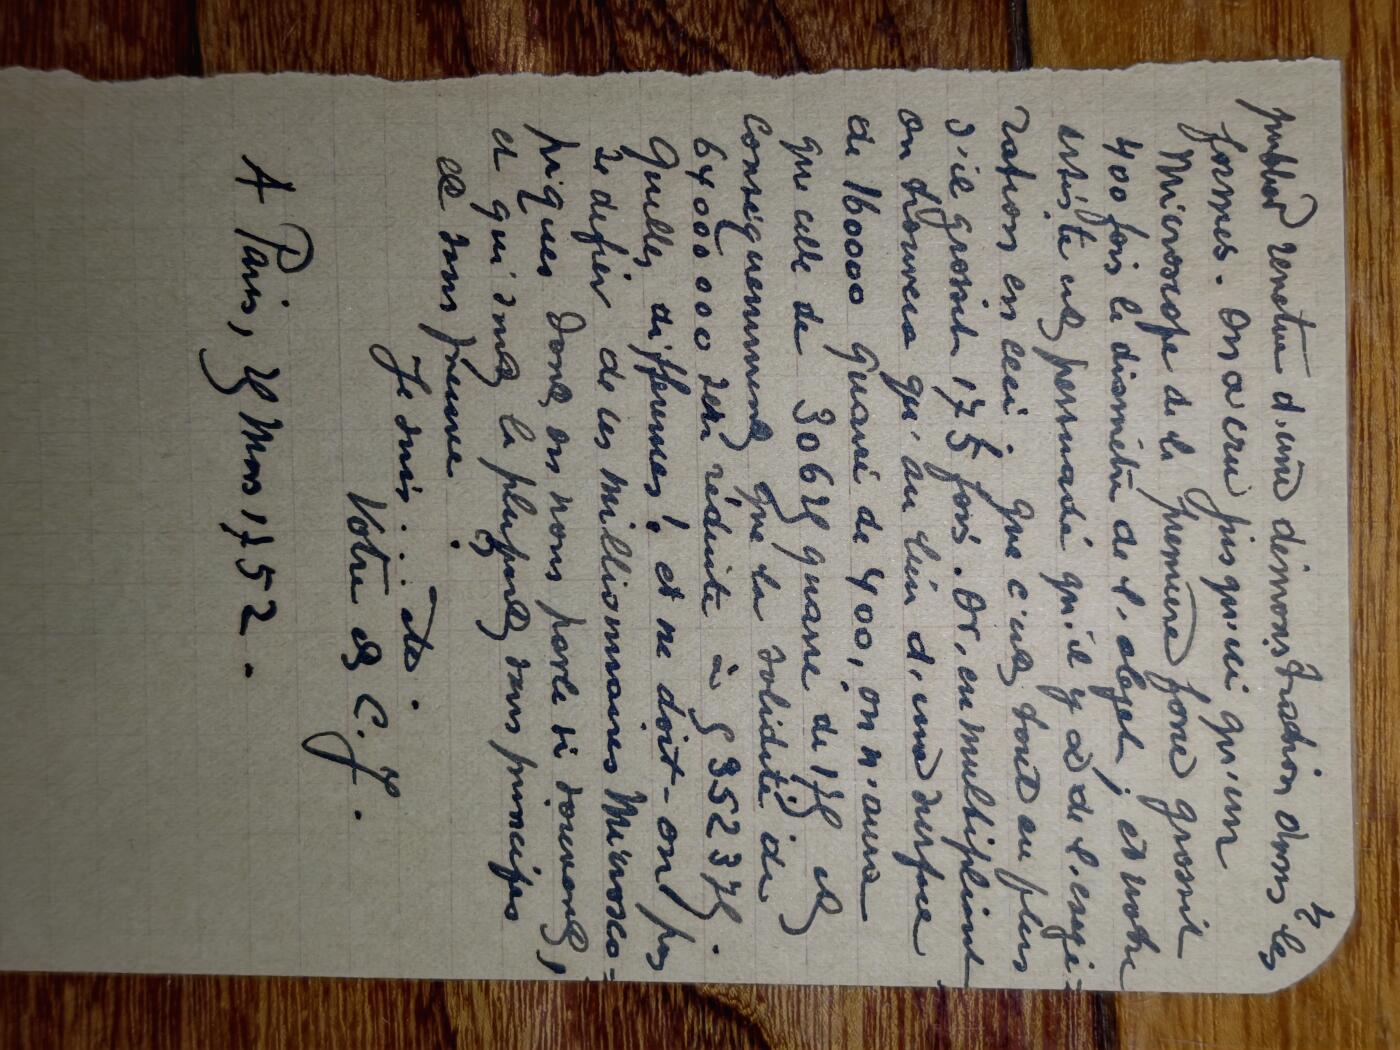 2
resultat d'une démonstration dans les
formes. On a cru jusqu'ici qu'un
Microscope de la première force grossit
400 fois le diamètre de l'objet, et notre
artiste est persuadé qu'il y a de l'exagé=
ration en ceci : que c'est tout au plus
s'il grossit 175 fois. Or, en multipliant
on trouvera qu'au lieu d'une surface
de 160000 quarré de 400, on n'aura
que celle de 30625 quarré de 175 et
conséquemment que la solidité de
64000000 sera réduite à 5359375.
Quelles différences ! et ne doit-on pas
se défier de ces millionnaires Microsco=
piques dont on nous parle si souvent,
et qui sont la plupart sans principes
et sans preuve.
Je suis... etc.
Votre C. J.
A Paris, 25 Mars 1752.